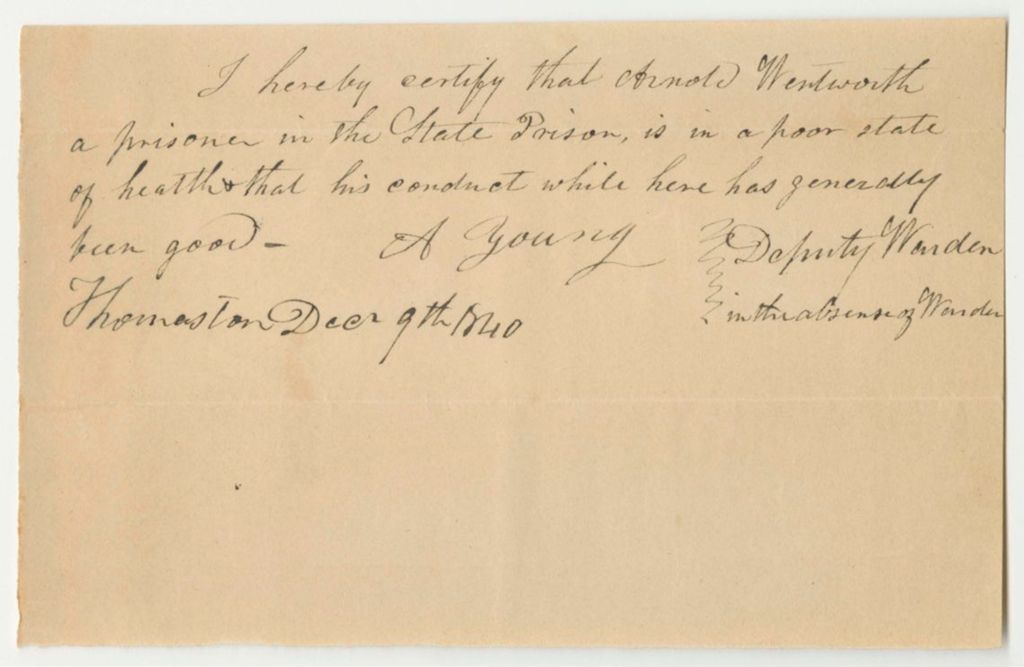 I hereby certify that Arnold Wentworth
a prisoner in the State Prison, is in a poor state
of health & that his conduct while here has generally
been good - A Young Deputy Warden
Thomaston Decr 9th 1840 in the absense of Warden